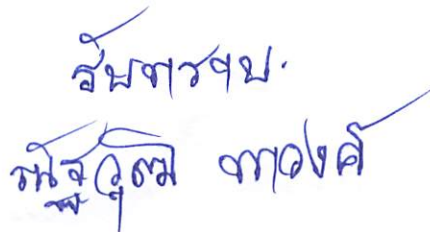 รับทราบ.
ณัฐวุฒิ ทวงศ์